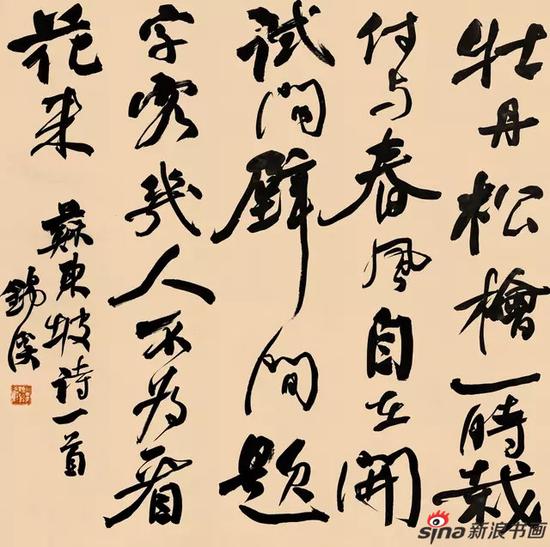 牡丹松檜一時栽
付与春風自在開
試問壁間題
字客幾人不為看
花来
蘇東坡詩一首
sina 新浪书画